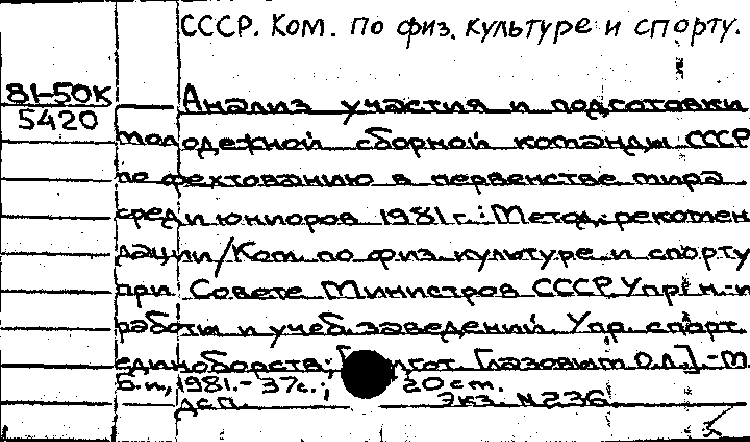 СССР. Ком. по физ. культуре и спорту.
81-50к
5420
Анализ участия и подготовки
молодежной сборной команды СССР
по фехтованию в первенстве мира
среди юниоров 1981 г.: Метод. рекомен
дации/Ком. по физ. культуре и спорту
при Совете Министров СССР. Упр. н.-и
работы и учеб. заведений. Упр. спорт.
единоборств; Глазовым О.Л.].-М
Б.м., 1981.- 37с.; 20 см.
Дсп. Экз. №236